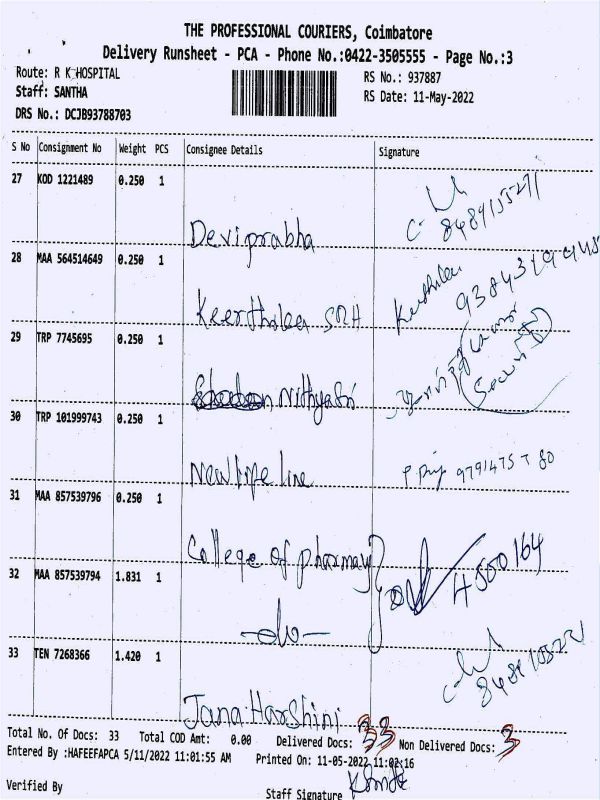 THE PROFESSIONAL COURIERS, Coimbatore
Delivery Runsheet - PCA - Phone No.:0422-3505555 - Page No.:3
Route: R K HOSPITAL
RS No.: 937887
Staff: SANTHA
RS Date: 11-May-2022
DRS No.: DCJB93788703
S No Consignment No Weight PCS Consignee Details Signature
27 KOD 1221489 0.250 1
Deviprabha
28 MAA 564514649 0.250 1
Keerthika SRH
29 TRP 7745695 0.250 1
Nithyasri
30 TRP 101999743 0.250 1
New life line
31 MAA 857539796 0.250 1
College of pharmacy 4500164
32 MAA 857539794 1.831 1
-do-
33 TEN 7268366 1.420 1
Jana Harshini
Total No. Of Docs: 33 Total COD Amt: 0.00 Delivered Docs: 33 Non Delivered Docs: 3
Entered By :HAFEEFAPCA 5/11/2022 11:01:55 AM Printed On: 11-05-2022 11:02:16
Verified By Staff Signature